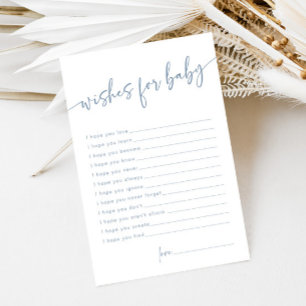 wishes for baby
I hope you love
I hope you learn
I hope you become
I hope you know
I hope you never
I hope you always
I hope you ignore
I hope you never forget
I hope you don't
I hope you aren't afraid
I hope you create
I hope you find
love,